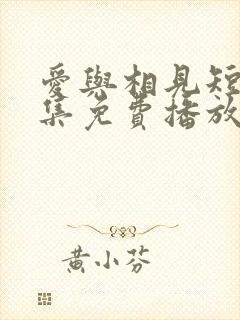 愛與相見短
集免費播放
黃小芬